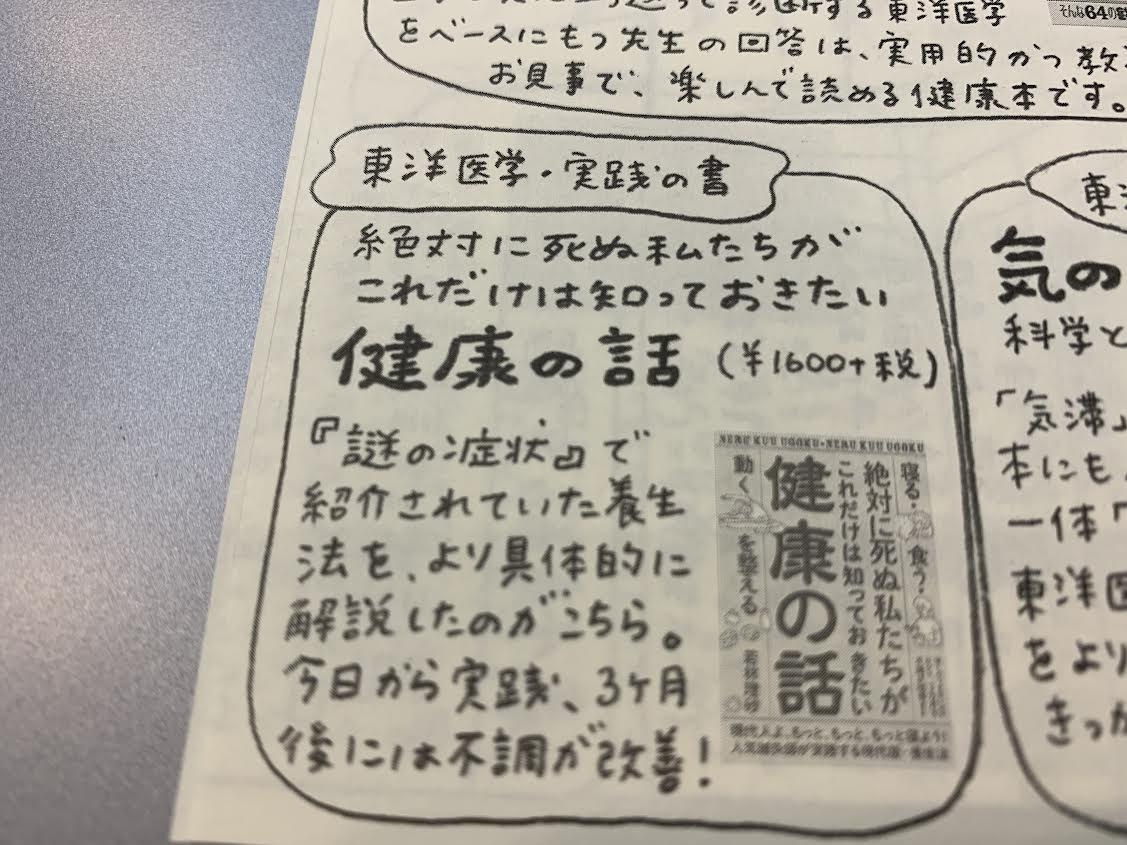 って診断する東洋医学
をベースにもつ先生の回答は、実用的かつ教
お見事で、楽しんで読める健康本です。
そんな64の
東洋医学・実践の書
絶対に死ぬ私たちが
これだけは知っておきたい
健康の話 (¥1600+税)
『謎の症状』で
紹介されていた養生
法を、より具体的に
解説したのがこちら。
今日から実践、3ヶ月
後には不調が改善!
NERU KUU UGOKU・NERU KUU UGOKU
寝る・食う・
絶対に死ぬ私たちが
これだけは知っておきたい
健康の話
動く を整える
現代人よ、もっと、もっと、もっと寝よう!
人気鍼灸師が実践する現代版・養生法
東洋
気の
科学と
「気滞」
本にも
一体「
東洋医
をより
きっか